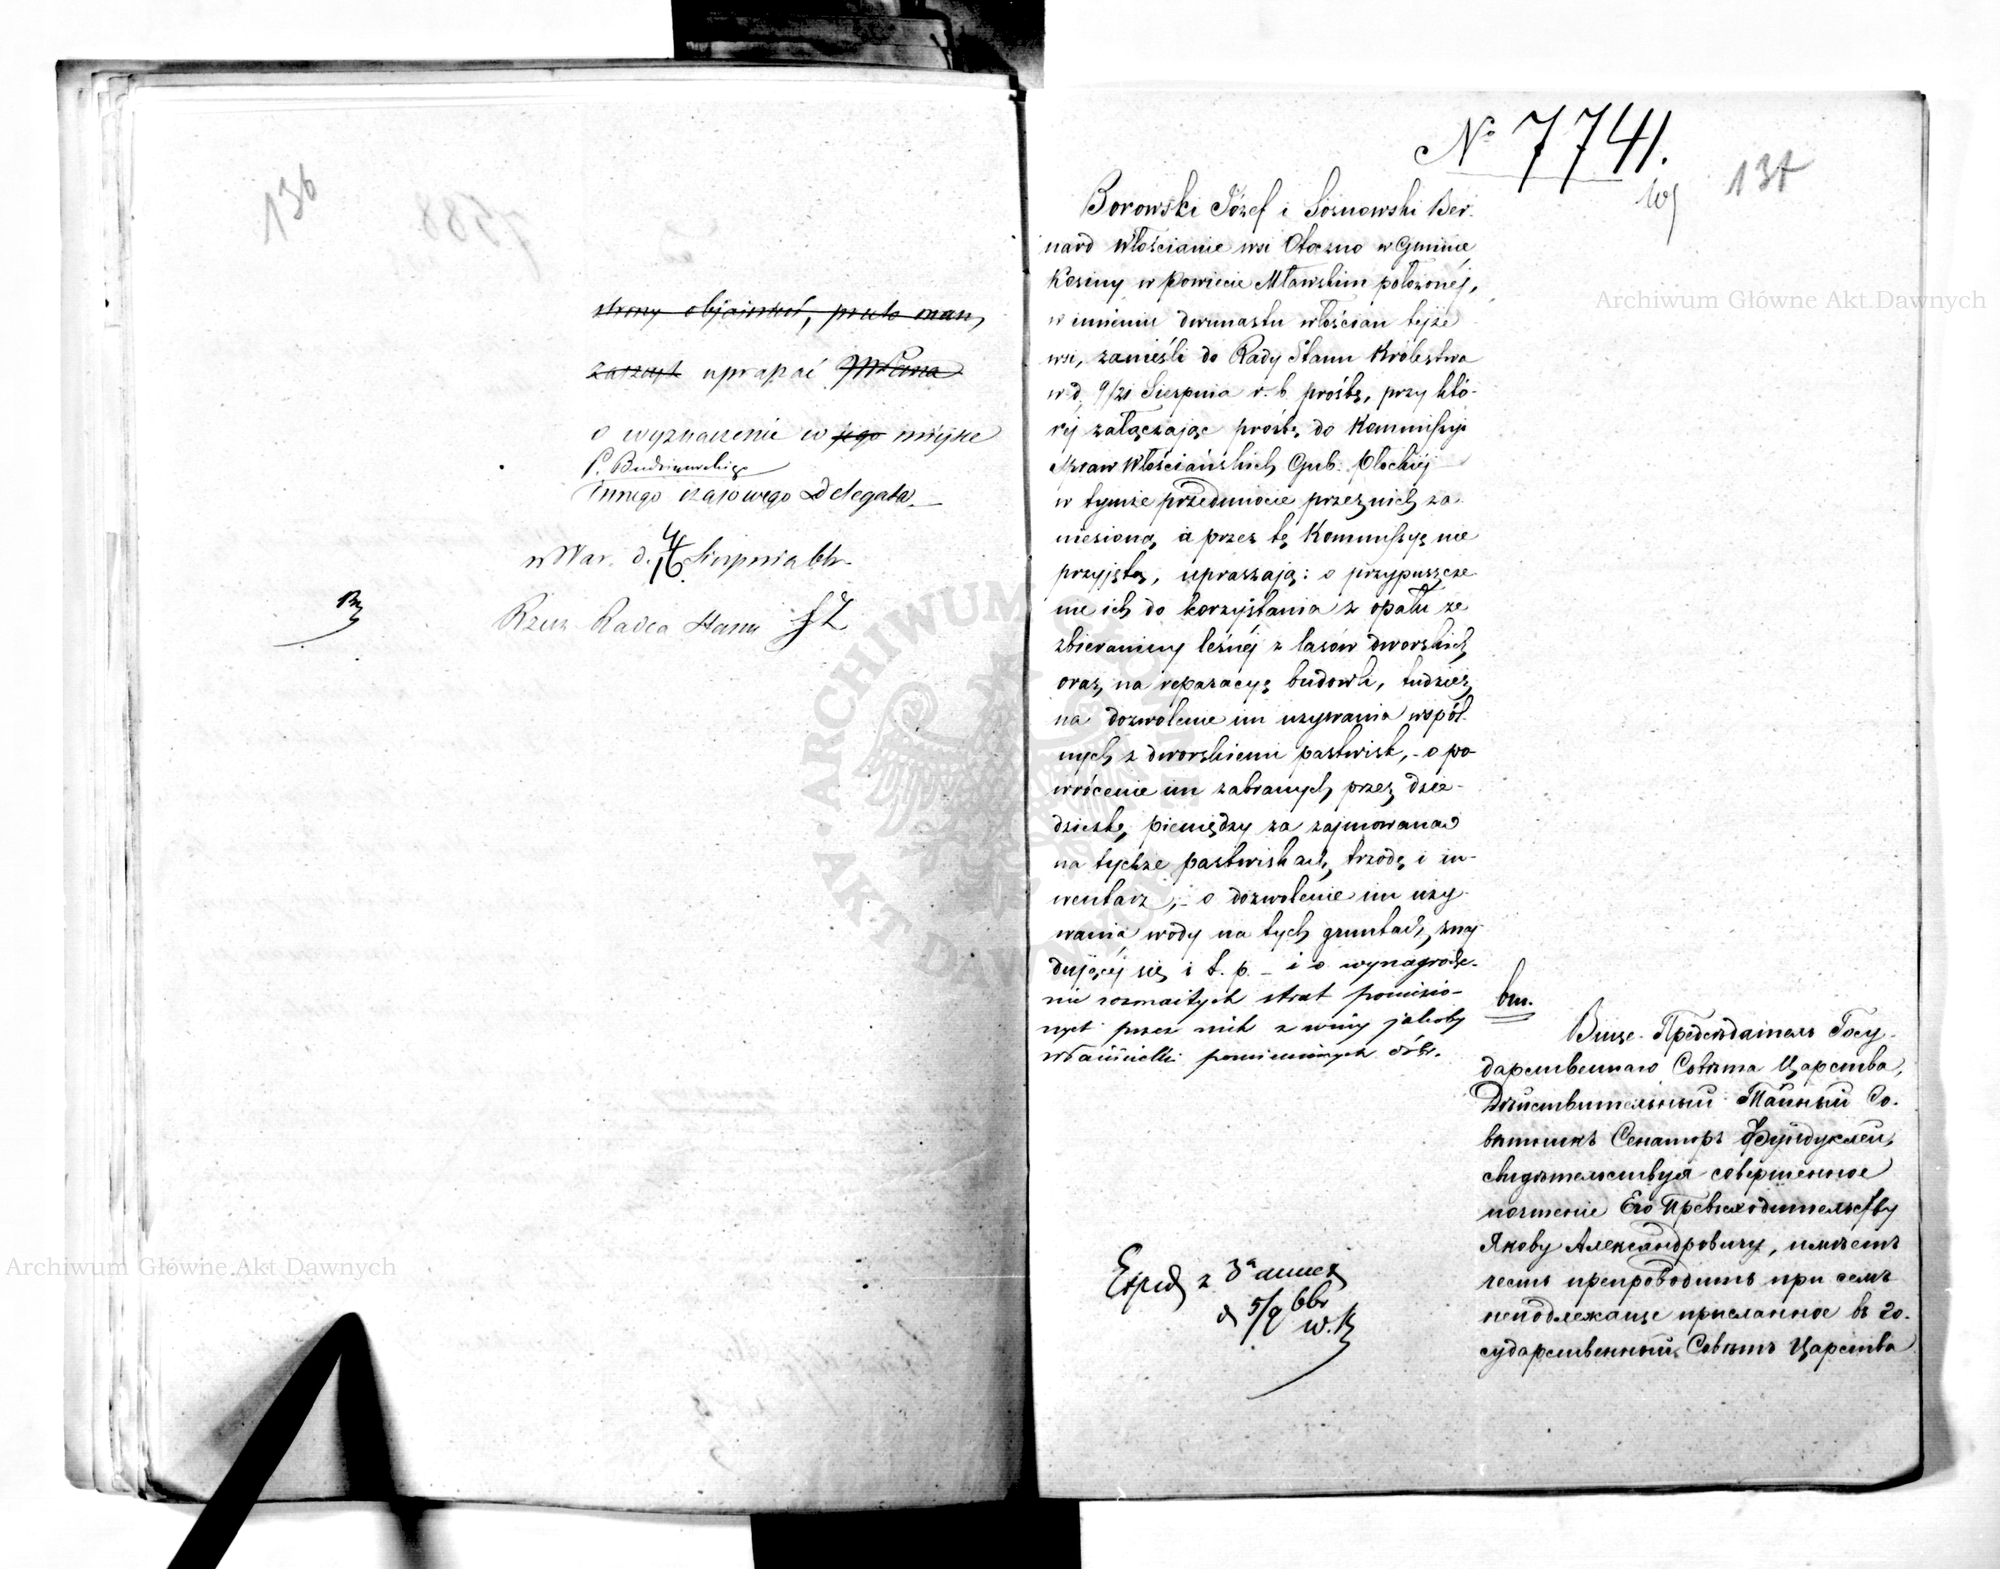 136
strony objaśnień,
uprasza
o wyznaczenie w jego miejsce
innego czasowego Delegata
w War. d. 4/16 Sierpnia
Rzecz. Radca Stanu
Archiwum Główne Akt Dawnych
No 7741.
137
Borowski Józef i Sosnowski Ber-
nard włościanie wsi Otoczno w Gminie
Kosiny w Powiecie Mławskim położonéj,
w imieniu dwunastu włościan tejże
wsi, zanieśli do Rady Stanu Królestwa
w d. 9/21 Sierpnia r. b. prośbę, przy któ-
réj załączając prośbę do Kommissyi
Spraw Włościańskich Gub. Płockiéj
w tymże przedmiocie przez nich za-
niesioną, a przez tę Kommissyę nie
przyjętą, upraszają: o przypuszcze
nie ich do korzystania z opału ze
zbieraniny leśnéj z lasów dworskich
oraz na reparacyę budowli, tudzież
na dozwolenie im używania wspól-
nych z dworskiemi pastwisk, - o po-
wrócenie im zabranych przez dzie-
dziczkę pieniędzy za zajmowaną
na tychże pastwiskach trzodę i in-
wentarz, - o dozwolenie im uży-
wania wody na tych gruntach znaj
dującéj się i t. p. - i o wynagrodze-
nie rozmaitych strat poniesio-
nych przez nich z winy jakoby
właścicielki pomienionych dóbr.
Вице-Предсѣдатель Госу-
дарственнаго Совѣта Царства,
Дѣйствительный Тайный Со-
вѣтникъ Сенаторъ Фундуклей,
свидѣтельствуя совершенное
почтеніе Его Превосходительству
Якову Александровичу, имѣетъ
честь препроводить при семъ
неподлежаще присланное въ Го-
сударственный Совѣтъ Царства
Exped z 3a annex
d 5/9 bbr
Archiwum Główne Akt Dawnych
ARCHIWUM GŁÓWNE AKT DAWNYCH